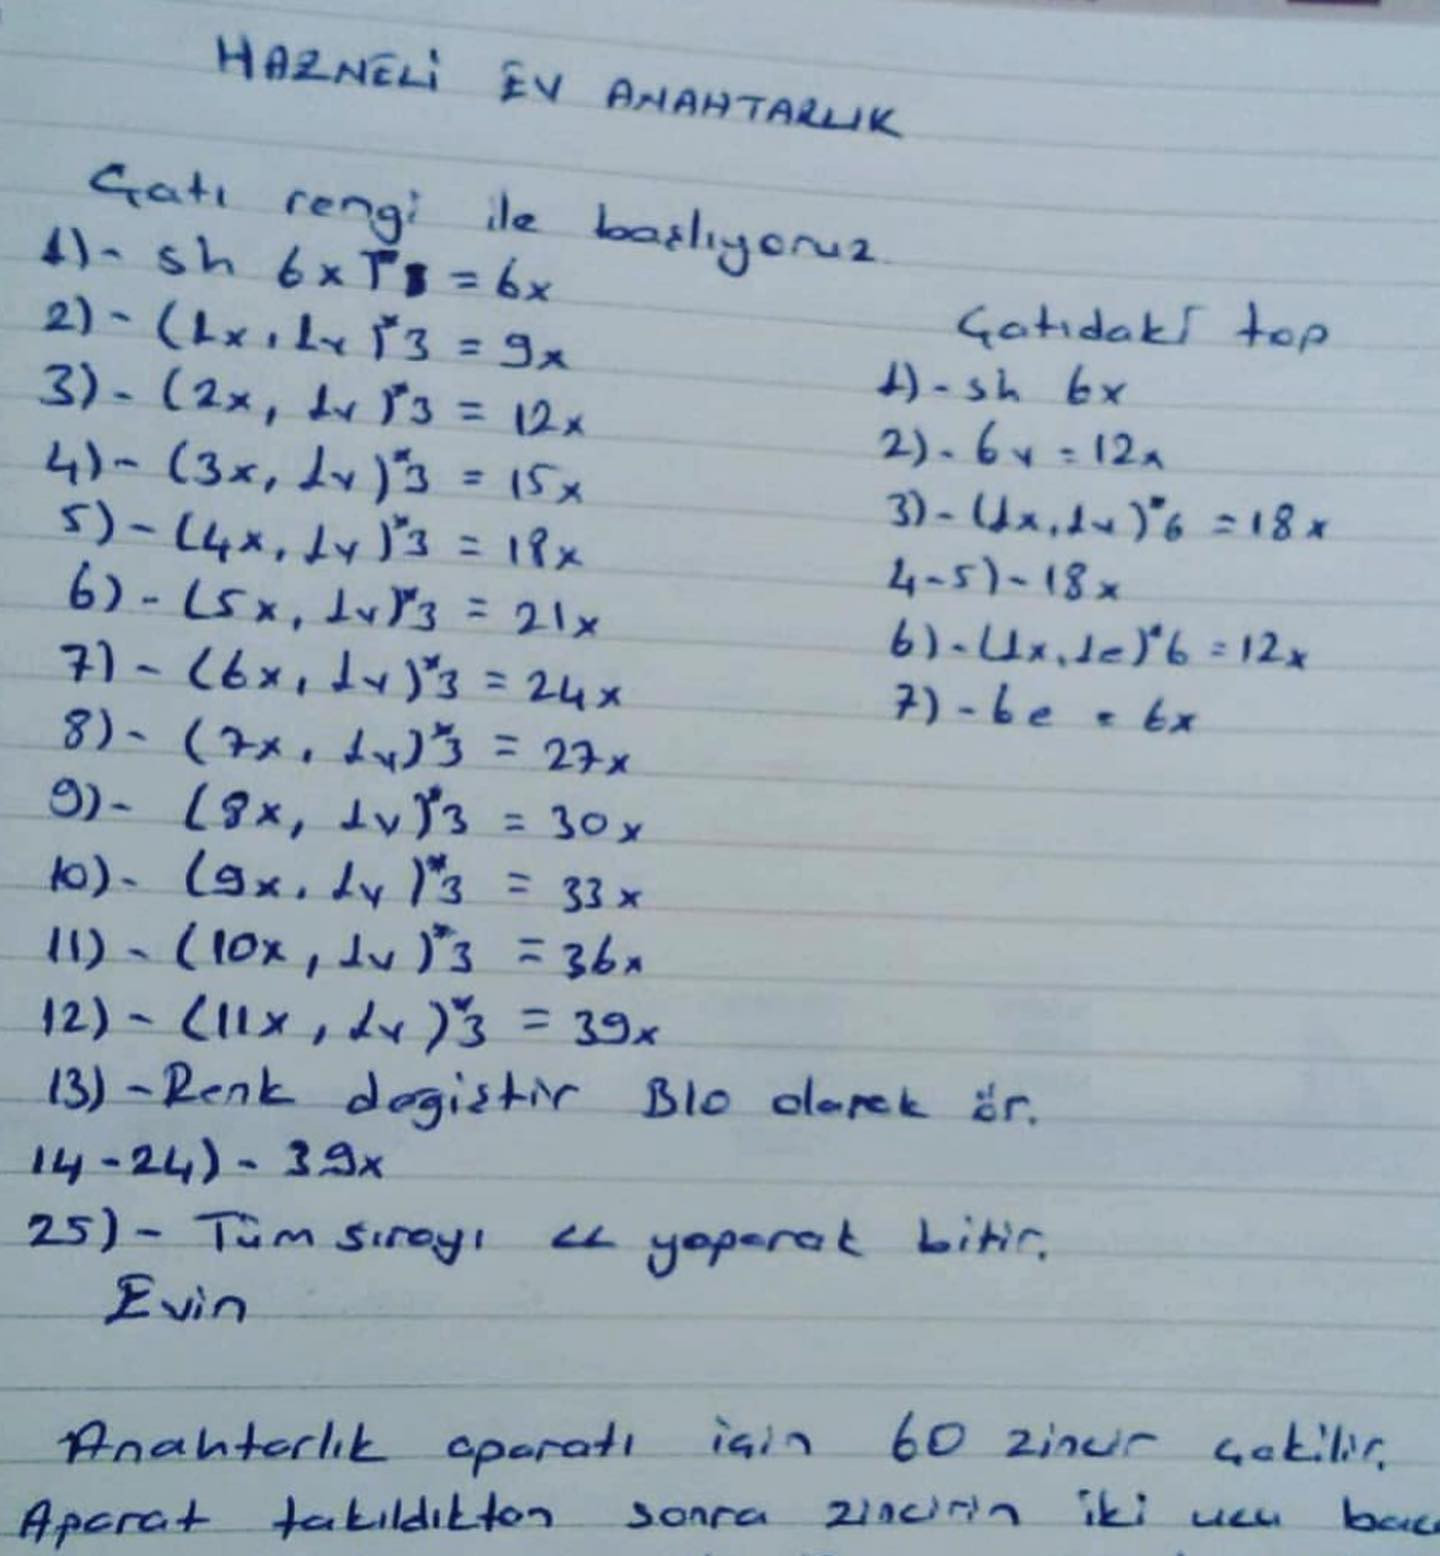 HAZNELİ EV ANAHTARLIK
Çatı rengi ile başlıyoruz
1)- sh 6x = 6x
2)- (1x, 1v)*3 = 9x
3)- (2x, 1v)*3 = 12x
4)- (3x, 1v)*3 = 15x
5)- (4x, 1v)*3 = 18x
6)- (5x, 1v)*3 = 21x
7)- (6x, 1v)*3 = 24x
8)- (7x, 1v)*3 = 27x
9)- (8x, 1v)*3 = 30x
10)- (9x, 1v)*3 = 33x
11)- (10x, 1v)*3 = 36x
12)- (11x, 1v)*3 = 39x
13)- Renk değiştir Blo olarak ör.
14-24)- 39x
25)- Tüm sırayı cc yaparak bitir.
Evin
Çatıdaki top
1)- sh 6x
2)- 6v = 12x
3)- (1x, 1v)*6 = 18x
4-5)- 18x
6)- (1x, 1e)*6 = 12x
7)- 6e = 6x
Anahtarlık aparatı için 60 zincir çekilir.
Aparat takıldıktan sonra zincirin iki ucu